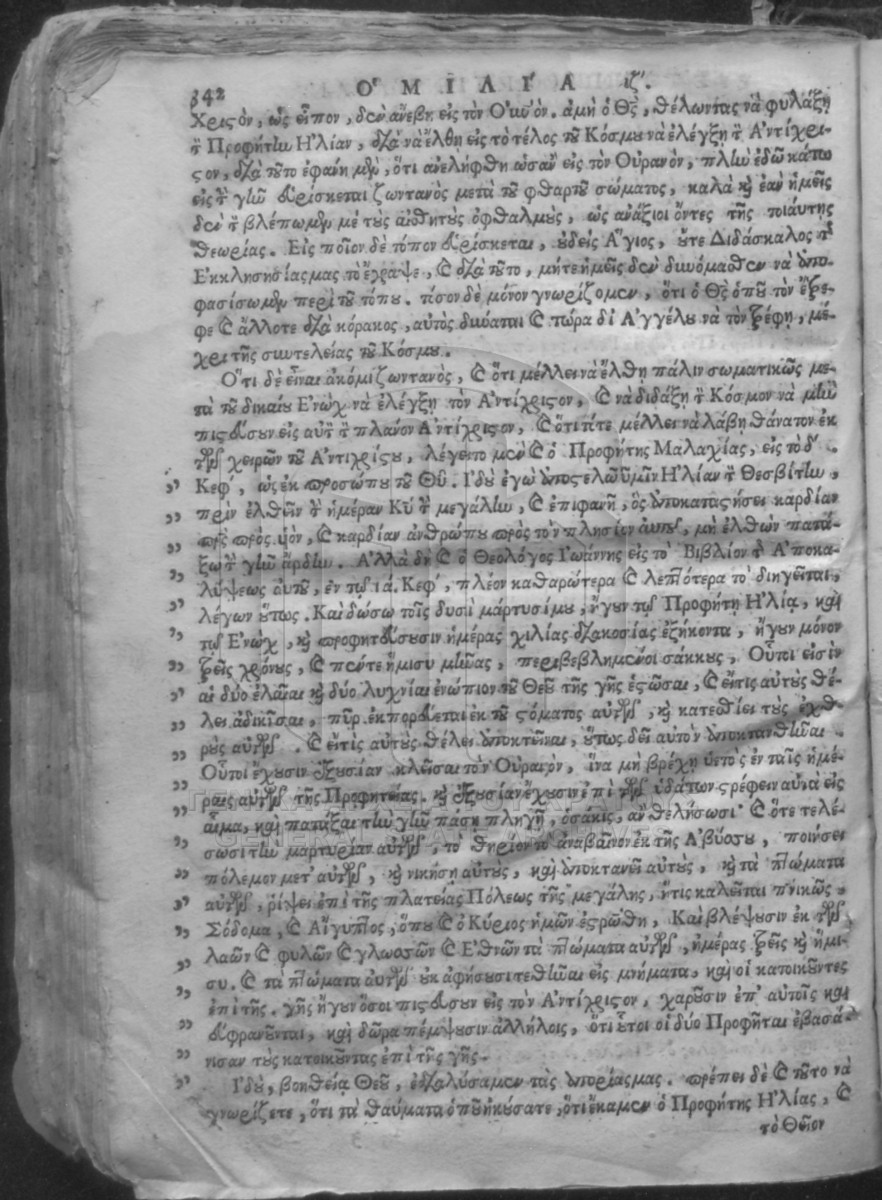 342 ΟΜΙΛΙΑ ιζ´.
Χριστὸν, ὡς εἶπον, δὲν ἀνέβη εἰς τὸν Οὐρανόν. ἀμὴ ὁ Θς̀, θέλωντας νὰ φυλάξῃ
τὸν Προφήτην Ηλίαν, διὰ νὰ ἔλθῃ εἰς τὸ τέλος τοῦ Κόσμου νὰ ἐλέγξῃ τὸν Αντίχρι-
στον, διὰ τοῦτο ἐφάνη μὲν, ὅτι ἀνελήφθη ὡσὰν εἰς τὸν Οὐρανὸν, πλὴν ἐδῶ κάπου
εἰς τὴν γῆν εὑρίσκεται ζωντανὸς μετὰ τοῦ φθαρτοῦ σώματος, καλὰ καὶ ἐὰν ἡμεῖς
δὲν τὸν βλέπωμεν μὲ τοὺς αἰσθητοὺς ὀφθαλμοὺς, ὡς ἀνάξιοι ὄντες τῆς τοιαύτης
θεωρίας. Εἰς ποῖον δὲ τόπον εὑρίσκεται, οὐδεὶς Αγιος, οὔτε Διδάσκαλος τῆς
Εκκλησησίας μας τὸ ἔγραψε, καὶ διὰ τοῦτο, μήτε ἡμεῖς δὲν δυνόμασθεν νὰ ἀπο-
φασίσωμεν περὶ τοῦ τόπου. τόσον δὲ μόνον γνωρίζομεν, ὅτι ὁ Θς̀ ὁποῦ τὸν ἔτρε-
φε καὶ ἄλλοτε διὰ κόρακος, αὐτὸς δύναται καὶ τώρα δι Αγγέλου νὰ τὸν τρέφῃ, μέ-
χρι τῆς συντελείας τοῦ Κόσμου.
Οτι δὲ εἶναι ἀκόμι ζωντανὸς, καὶ ὅτι μέλλει νὰ ἔλθῃ πάλιν σωματικῶς με-
τὰ τοῦ δικαίου Ενὼχ νὰ ἐλέγξῃ τὸν Αντίχριστον, καὶ νὰ διδάξῃ τὸν Κόσμον νὰ μὴν
πιστεύσουν εἰς αὐτὸν τὸν πλάνον Αντίχριστον, καὶ ὅτι τότε μέλλει νὰ λάβῃ θάνατον ἐκ
τῶν χειρῶν τοῦ Αντιχρίστου, λέγει το μὲν καὶ ὁ Προφήτης Μαλαχίας, εἰς τὸ δ´.
„ Κεφ´, ὡς ἐκ προσώπου τοῦ Θῦ. Ιδοὺ ἐγὼ ἀποστελῶ ὑμῖν Ηλίαν τὸν Θεσβίτην,
„ πρὶν ἐλθεῖν τὴν ἡμέραν Κυ τὴν μεγάλην, καὶ ἐπιφανῆ, ὃς ἀποκαταστήσει καρδίαν
„ πρς̀ πρὸς υἱὸν, καὶ καρδίαν ἀνθρώπου πρὸς τὸν πλησίον αὐτοῦ, μὴ ἐλθὼν πατά-
„ ξω τὴν γῆν ἄρδην. Αλλὰ δὴ καὶ ὁ Θεολόγος Ιωάννης εἰς τὸ Βιβλίον τῆς Αποκα-
„ λύψεως αὐτοῦ, ἐν τῷ ιά. Κεφ´, πλέον καθαρώτερα καὶ λεπτότερα τὸ διηγεῖται,
„ λέγων οὕτως. Καὶ δώσω τοῖς δυσὶ μάρτυσί μου, ἤγουν τῷ Προφήτῃ Ηλίᾳ, καὶ
„ τῷ Ενὼχ, καὶ προφητεύσουσιν ἡμέρας χιλίας διακοσίας ἑξήκοντα, ἤγουν μόνον
„ τρεῖς χρόνους, καὶ πέντε ἥμισυ μῆνας, περιβεβλημένοι σάκκους, Οὗτοι εἰσὶν
„ αἱ δύο ἐλαῖαι καὶ δύο λυχνίαι ἐνώπιον τοῦ Θεοῦ τῆς γῆς ἑστῶσαι, καὶ εἴτις αὐτοὺς θέ-
„ λει ἀδικῆσαι, πῦρ ἐκπορεύεται ἐκ τοῦ στόματος αὐτῶν, καὶ κατεσθίει τοὺς ἐχθ-
„ ροὺς αὐτῶν. καὶ εἴτις αὐτοὺς θέλει ἀποκτεῖναι, οὕτως δεῖ αὐτὸν ἀποκτανθῆναι.
„ Οὗτοι ἔχουσιν ἐξουσίαν κλεῖσαι τὸν Οὐρανὸν, ἵνα μὴ βρέχῃ ὑετὸς ἐν ταῖς ἡμέ-
„ ραις αὐτῶν τῆς Προφητείας. καὶ ἐξουσίαν ἔχουσιν ἐπὶ τῶν ὑδάτων στρέφειν αὐτὰ εἰς
„ αἷμα, καὶ πατάξαι τὴν γῆν πάσῃ πληγῇ, ὁσάκις, ἂν θελήσωσι· καὶ ὅτε τελέ-
„ σωσι τὴν μαρτυρίαν αὐτῶν, τὸ θηρίον τὸ ἀναβαῖνον ἐκ τῆς Αβύσσου, ποιήσει
„ πόλεμον μετ᾽ αὐτῶν, καὶ νικήσῃ αὐτοὺς, καὶ ἀποκτανεῖ αὐτοὺς, καὶ τὰ πτώματα
„ αὐτῶν, ῥίψει ἐπὶ τῆς πλατείας Πόλεως τῆς μεγάλης, ἥτις καλεῖται πνικῶς,
„ Σόδομα, καὶ Αἴγυπτος, ὅπου καὶ ὁ Κύριος ἡμῶν ἐστρώθη, Καὶ βλέψουσιν ἐκ τῶν
„ λαῶν καὶ φυλῶν καὶ γλωσσῶν καὶ Εθνῶν τὰ πτώματα αὐτῶν, ἡμέρας τρεῖς καὶ ἥμι-
„ συ. καὶ τὰ πτώματα αὐτῶν οὐκ ἀφήσουσι τεθῆναι εἰς μνήματα, καὶ οἱ κατοικοῦντες
„ ἐπὶ τῆς. γῆς ἤγουν ὅσοι πιστεύσουν εἰς τὸν Αντίχριστον, χαροῦσιν ἐπ᾽ αὐτοῖς καὶ
„ εὐφρανοῦνται, καὶ δῶρα πέμψουσιν ἀλλήλοις, ὅτι οὗτοι οἱ δύο Προφῆται ἐβασά-
„ νισαν τοὺς κατοικοῦντας ἐπὶ τῆς γῆς.
„ Ιδοὺ, βοηθείᾳ Θεοῦ, ἐδιαλύσαμεν τὰς ἀπορίας μας. πρέπει δὲ καὶ τοῦτο νὰ
γνωρίζετε, ὅτι τὰ θαύματα ὁποῦ ἠκούσατε, ὅτι ἔκαμεν ὁ Προφήτης Ηλίας, καὶ
τὸ Θεῖον
ΓΕΝΙΚΑ ΑΡΧΕΙΑ ΤΟΥ ΚΡΑΤΟΥΣ
GENERAL STATE ARCHIVES